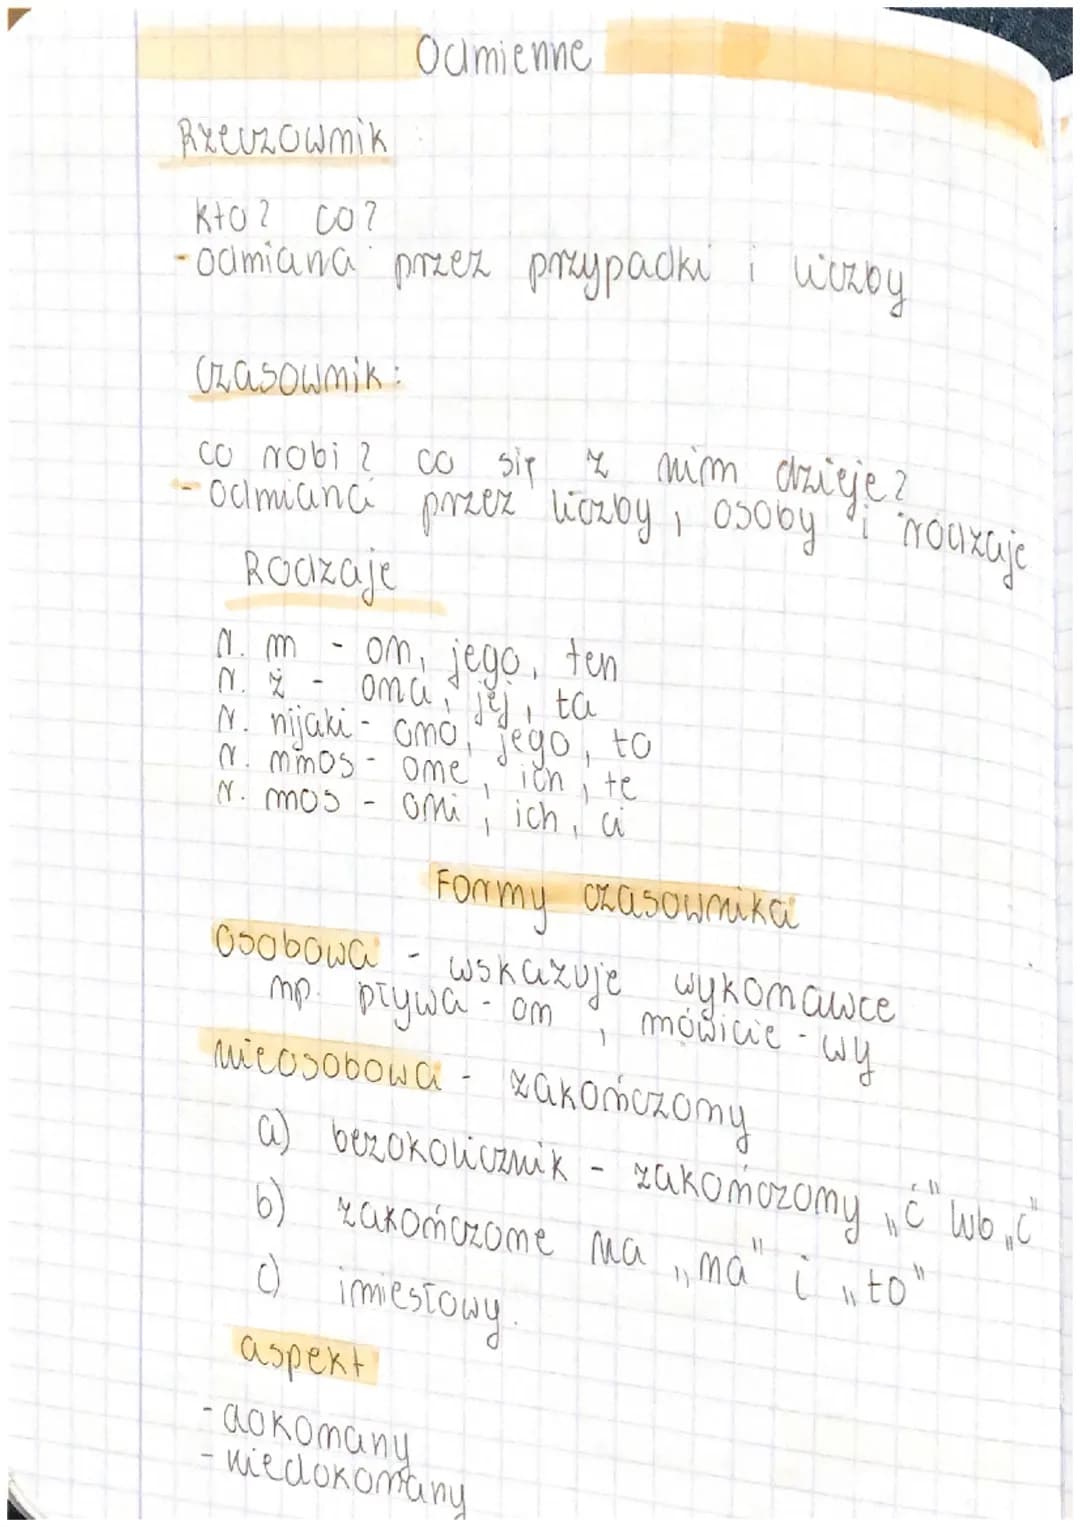 Odmienne
Rzeczownik
Kto? co?
- odmiana przez przypadki i liczby
Czasownik:
co robi? co się z nim dzieje?
- odmiana przez liczby, osoby i rodzaje
Rodzaje
r. m - on, jego, ten
r. ż - ona, jej, ta
r. nijaki - ono, jego, to
r. nmos - one, ich, te
r. mos - oni, ich, ci
Formy czasownika
osobowa - wskazuje wykonawce
np. pływa - on, mówicie - wy
nieosobowa - zakończony
a) bezokolicznik - zakończony „ć" lub „c"
b) zakończone na „no" i „to"
c) imiesłowy.
aspekt
- dokonany
- niedokonany